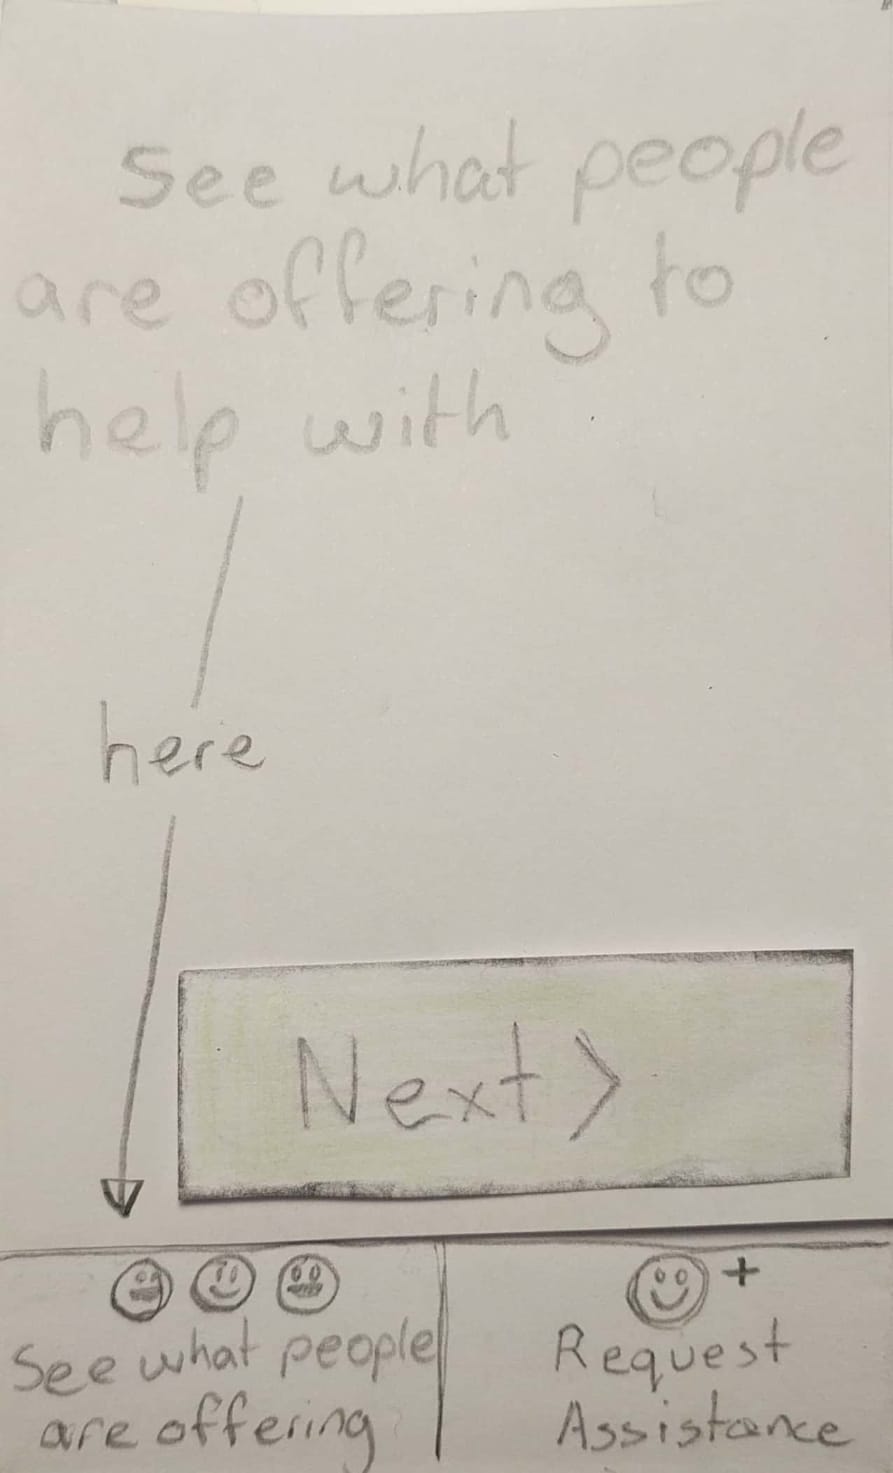 See what people
are offering to
help with
here
Next >
See what people
are offering
+
Request
Assistance